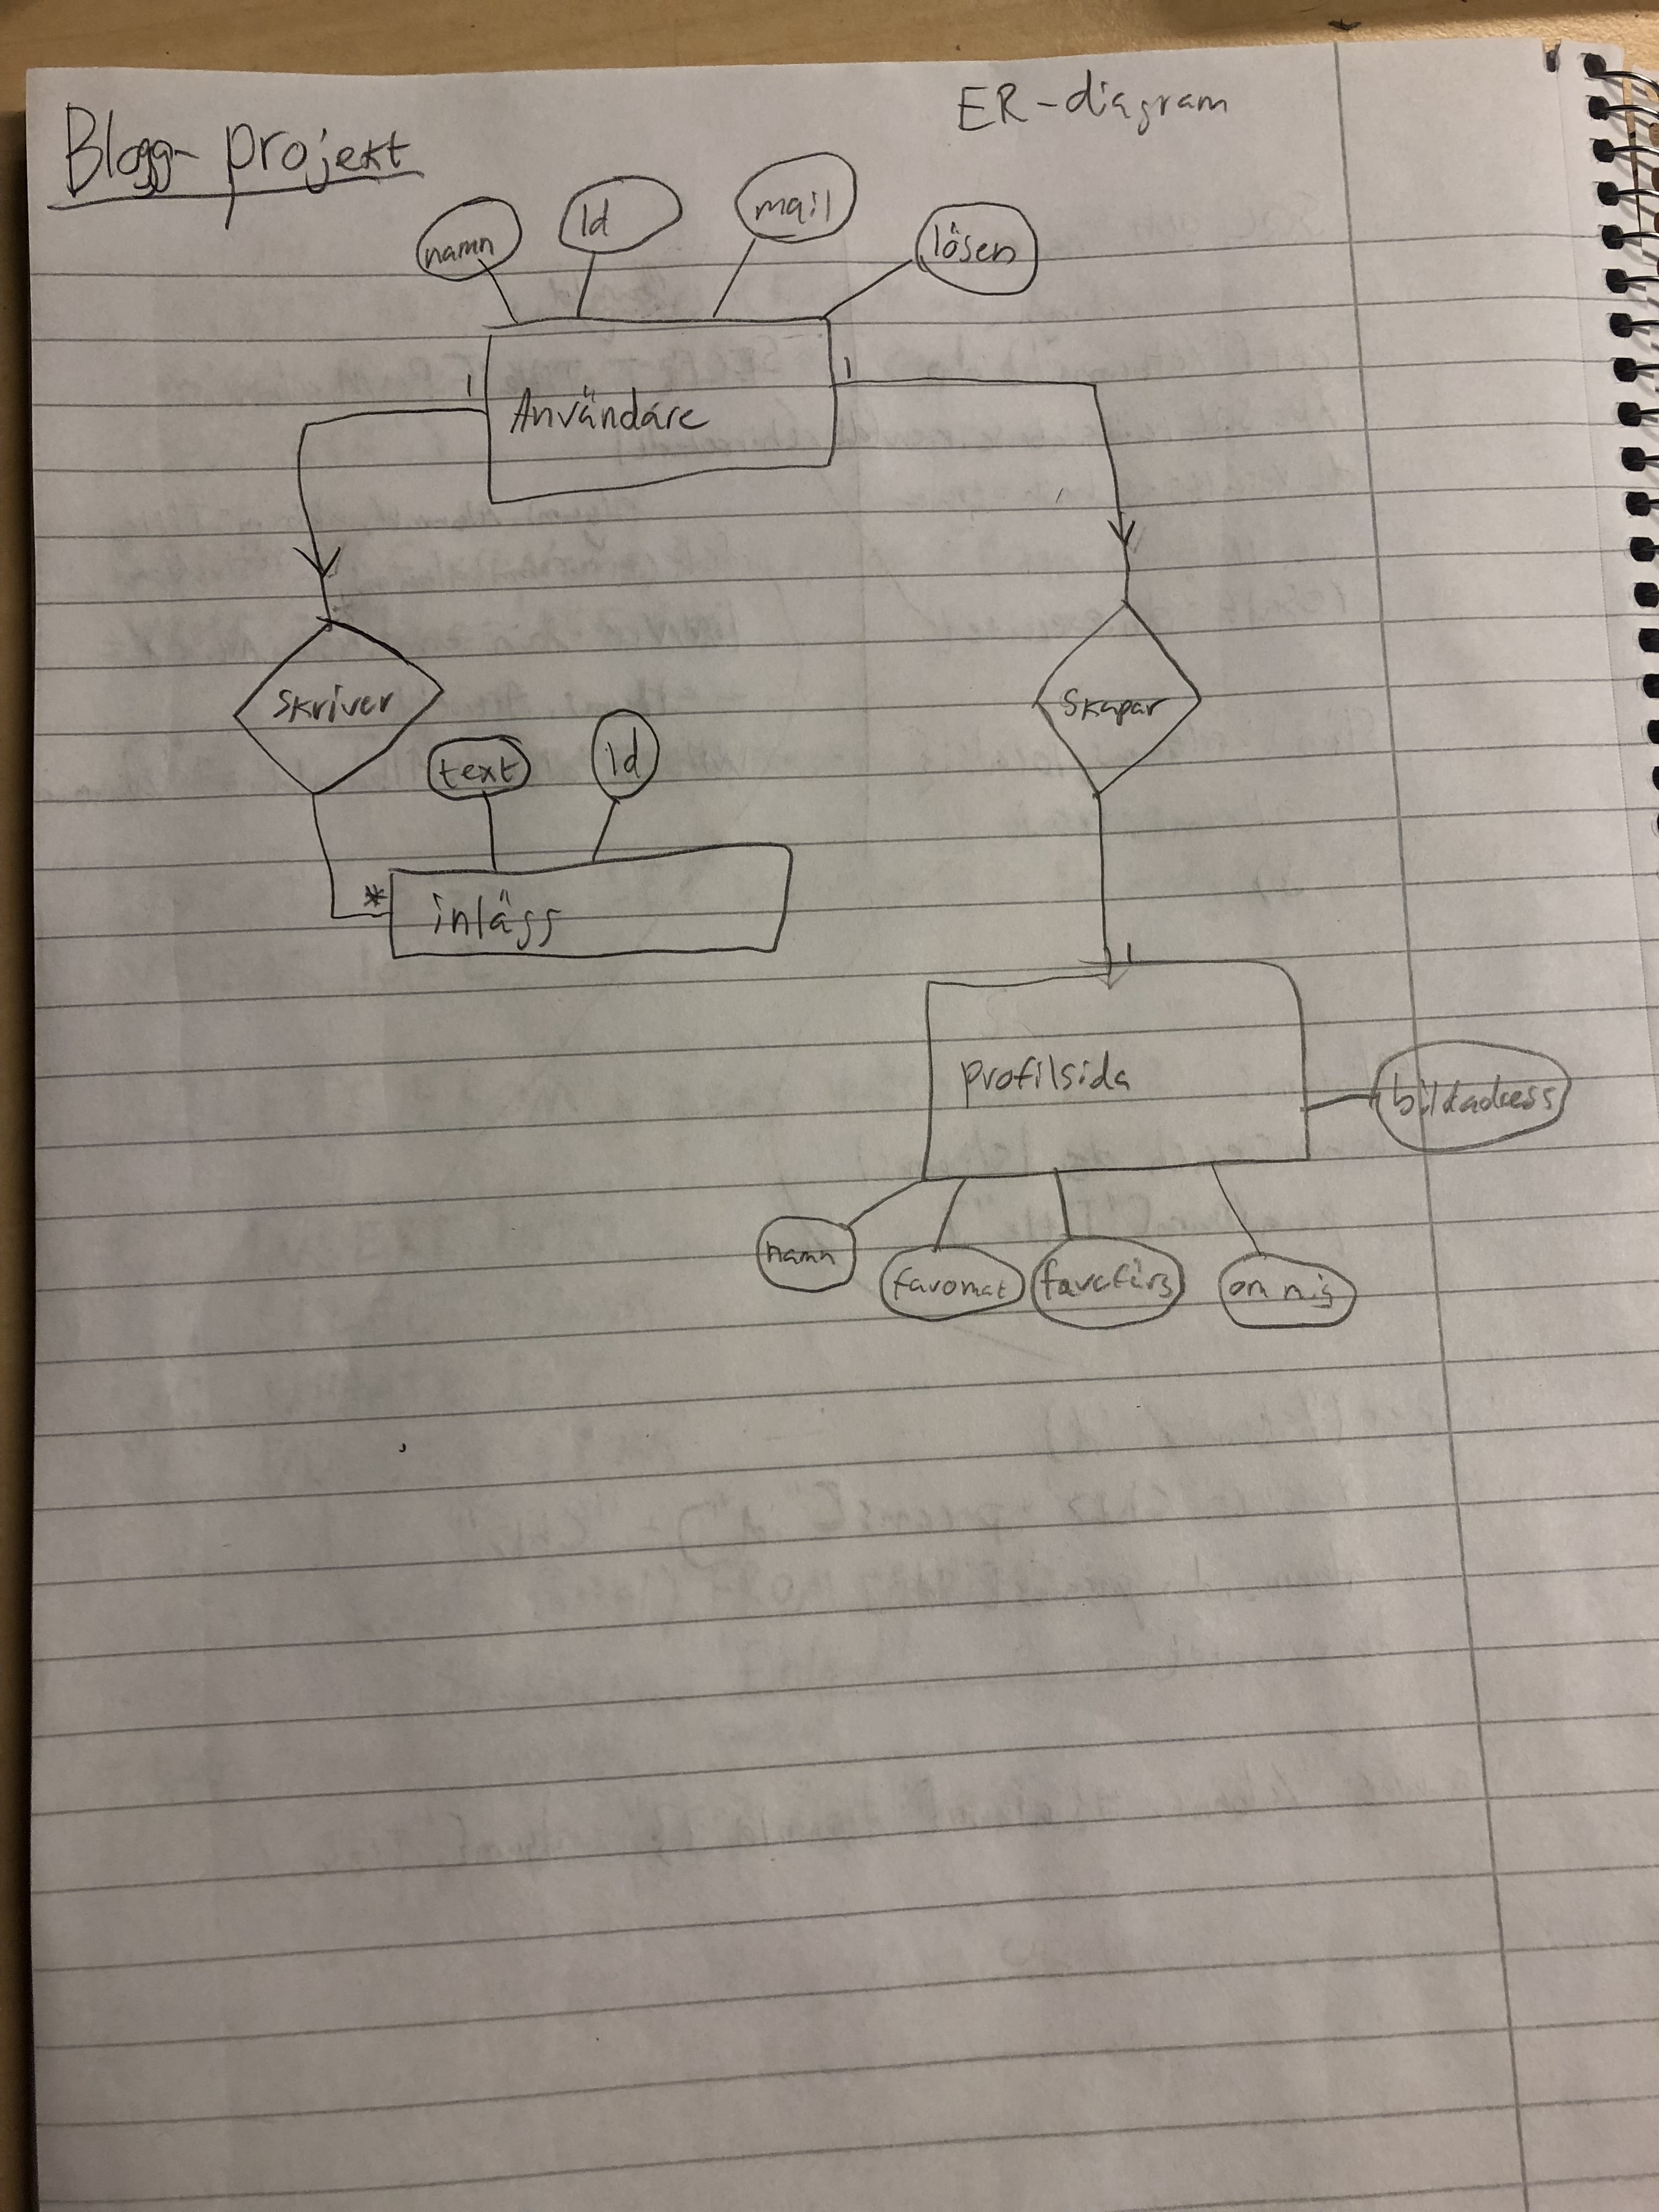 Blogg-projekt
ER-diagram
namn
Id
mail
lösen
1
Användare
1
Skriver
Skapar
text
Id
*
inlägg
1
profilsida
bildadress
namn
favomat
favofärg
om mig